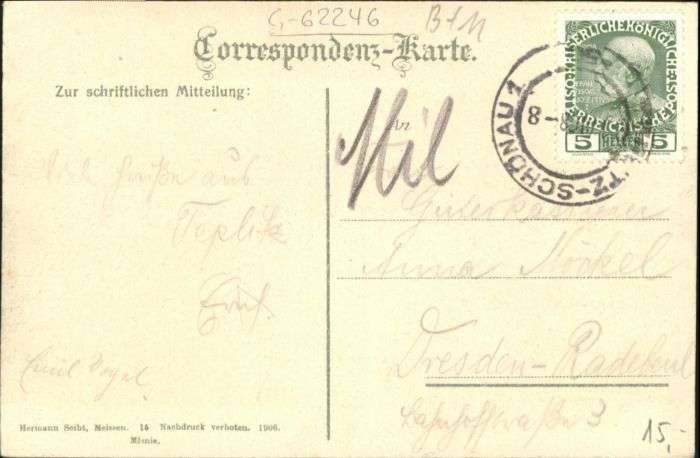 G-62246
B+M
Correspondenz-Karte.
Zur schriftlichen Mitteilung:
An
Viele Grüße aus
Teplitz
Ernst.
Emil Vogel
KAISERLICHE KÖNIGLICHE ÖSTERREICHISCHE
5 HELLER 5
TZ-SCHÖNAU 1
8-
Anna Nörkel
Dresden-Radebeul
Bahnhofstraße 3
Hermann Seibt, Meissen. 15 Nachdruck verboten. 1906.
15,-